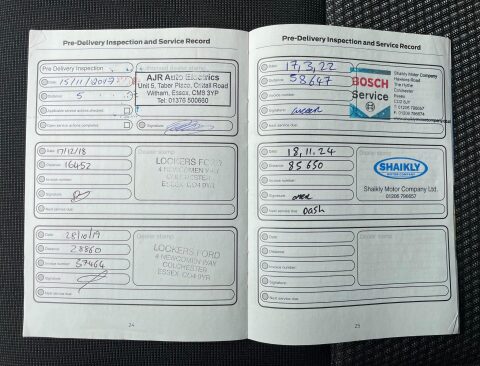 Pre-Delivery Inspection and Service Record
Pre Delivery Inspection
Date 15/11/2017
Distance 5
Applicable service actions checked
Open service actions
Signature
AJR Auto Electrics
Unit 5, Tabor Place, Crittall Road
Witham, Essex, CM8 3YP
Tel: 01376 500660
Date 17/12/18
Distance 16452
Invoice number
Signature
Next service due
Dealer stamp
LOCKERS FORD
4 NEWCOMEN WAY
COLCHESTER
ESSEX CO4 9YR
Date 28/10/19
Distance 28860
Invoice number 37464
Signature
Next service due
Dealer stamp
LOCKERS FORD
4 NEWCOMEN WAY
COLCHESTER
ESSEX CO4 9YR
24
Pre-Delivery Inspection and Service Record
Date 17,3,22
Distance 58647
Invoice number
Signature
Next service due
BOSCH
Service
Shaikly Motor Company
Hawkins Road
The Hythe
Colchester
Essex
CO2 8JY
Date 18,11,24
Distance 85650
Invoice number
Signature
Next service due Dash
SHAIKLY
MOTOR COMPANY
Shaikly Motor Company Ltd.
01206 796657
Date
Distance
Invoice number
Signature
Next service due
Dealer stamp
25